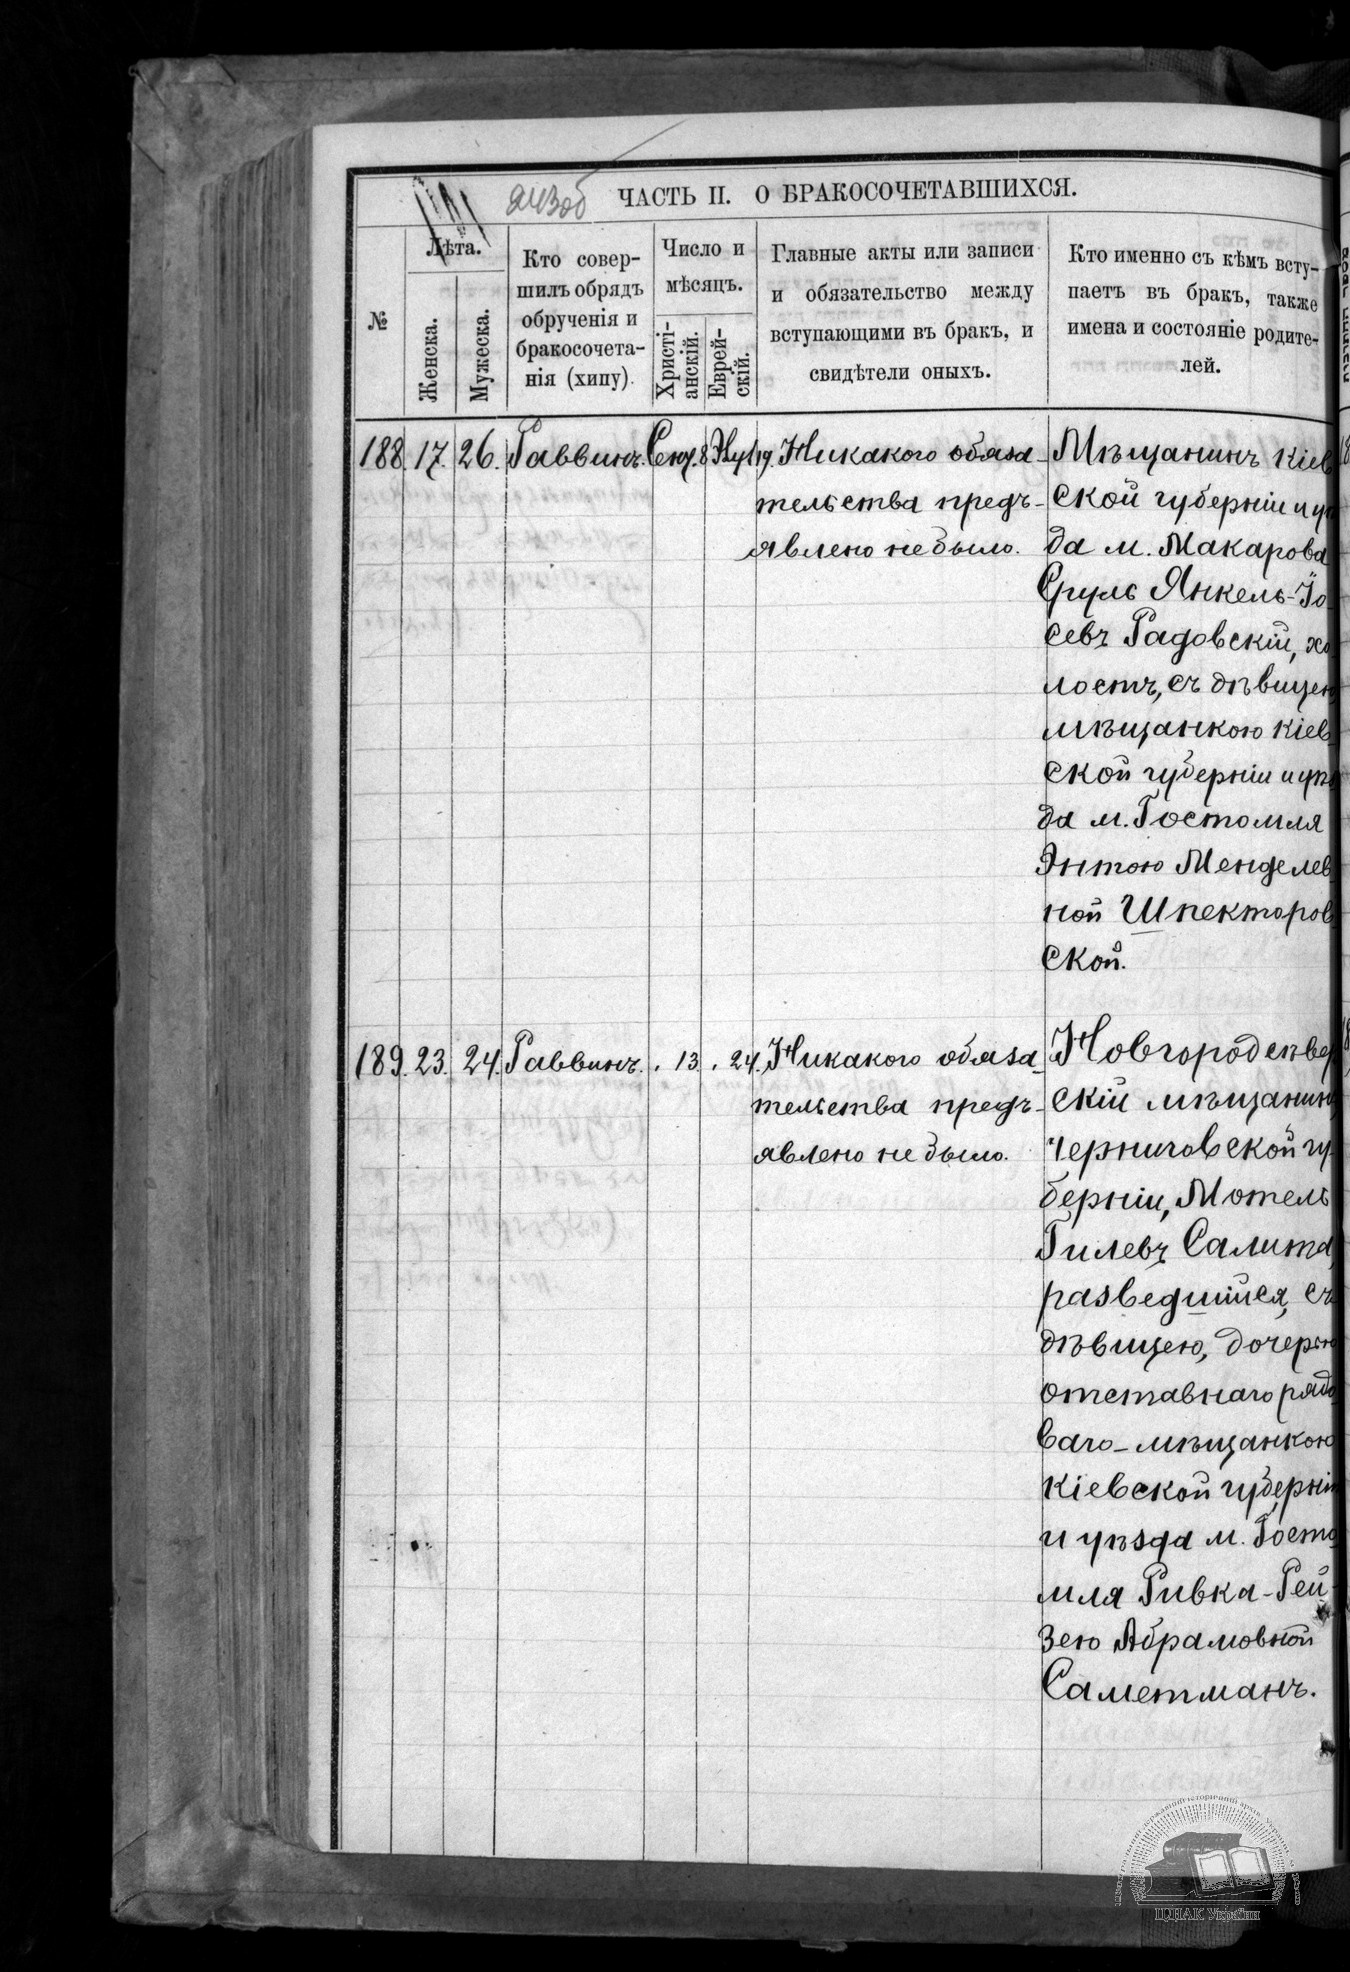 243об
ЧАСТЬ II. О БРАКОСОЧЕТАВШИХСЯ.
№
Лѣта.
Женска.
Мужеска.
Кто совер-
шилъ обрядъ
обрученія и
бракосочета-
нія (хипу).
Число и
мѣсяцъ.
Христі-
анскій.
Еврей-
скій.
Главные акты или записи
и обязательство между
вступающими въ бракъ, и
свидѣтели оныхъ.
Кто именно съ кѣмъ всту-
паетъ въ бракъ, также
имена и состояніе родите-
лей.
188. 17. 26. Раввинъ. 8 19. Никакого обяза-
тельства предъ-
явлено не было.
Мѣщанинъ Кіев
ской губерніи и уѣ
да м. Макарова
Сруль Янкель-Іо-
севъ Радовскій, хо-
лостъ, съ дѣвицею,
мѣщанкою Кіев-
ской губерніи и уѣз
да м. Гостомля
Энтою Менделев-
ной Шпекторов-
ской.
189. 23. 24. Раввинъ. " 13. " 24. Никакого обяза-
тельства предъ-
явлено не было.
Новгородсѣвер
скій мѣщанинъ
Черниговской гу-
берніи, Мотель
Гилевъ Салита,
разведшійся, съ
дѣвицею, дочерью
отставнаго рядо-
ваго - мѣщанкою
Кіевской губерніи
и уѣзда м. Госто-
мля Ривка-Рей-
зею Абрамовной
Саметманъ.
ЦДІАК України